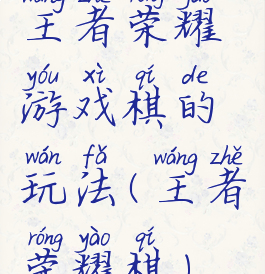 wáng zhě róng yào
王者荣耀
yóu xì qí de
游戏棋的
wán fǎ wáng zhě
玩法(王者
róng yào qí
荣耀棋)